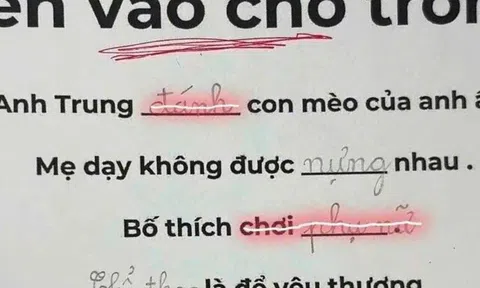 vào chỗ
Anh Trung đánh con mèo của anh
Mẹ dạy không được nựng nhau .
Bố thích chơi phụ nữ
là để yêu thương